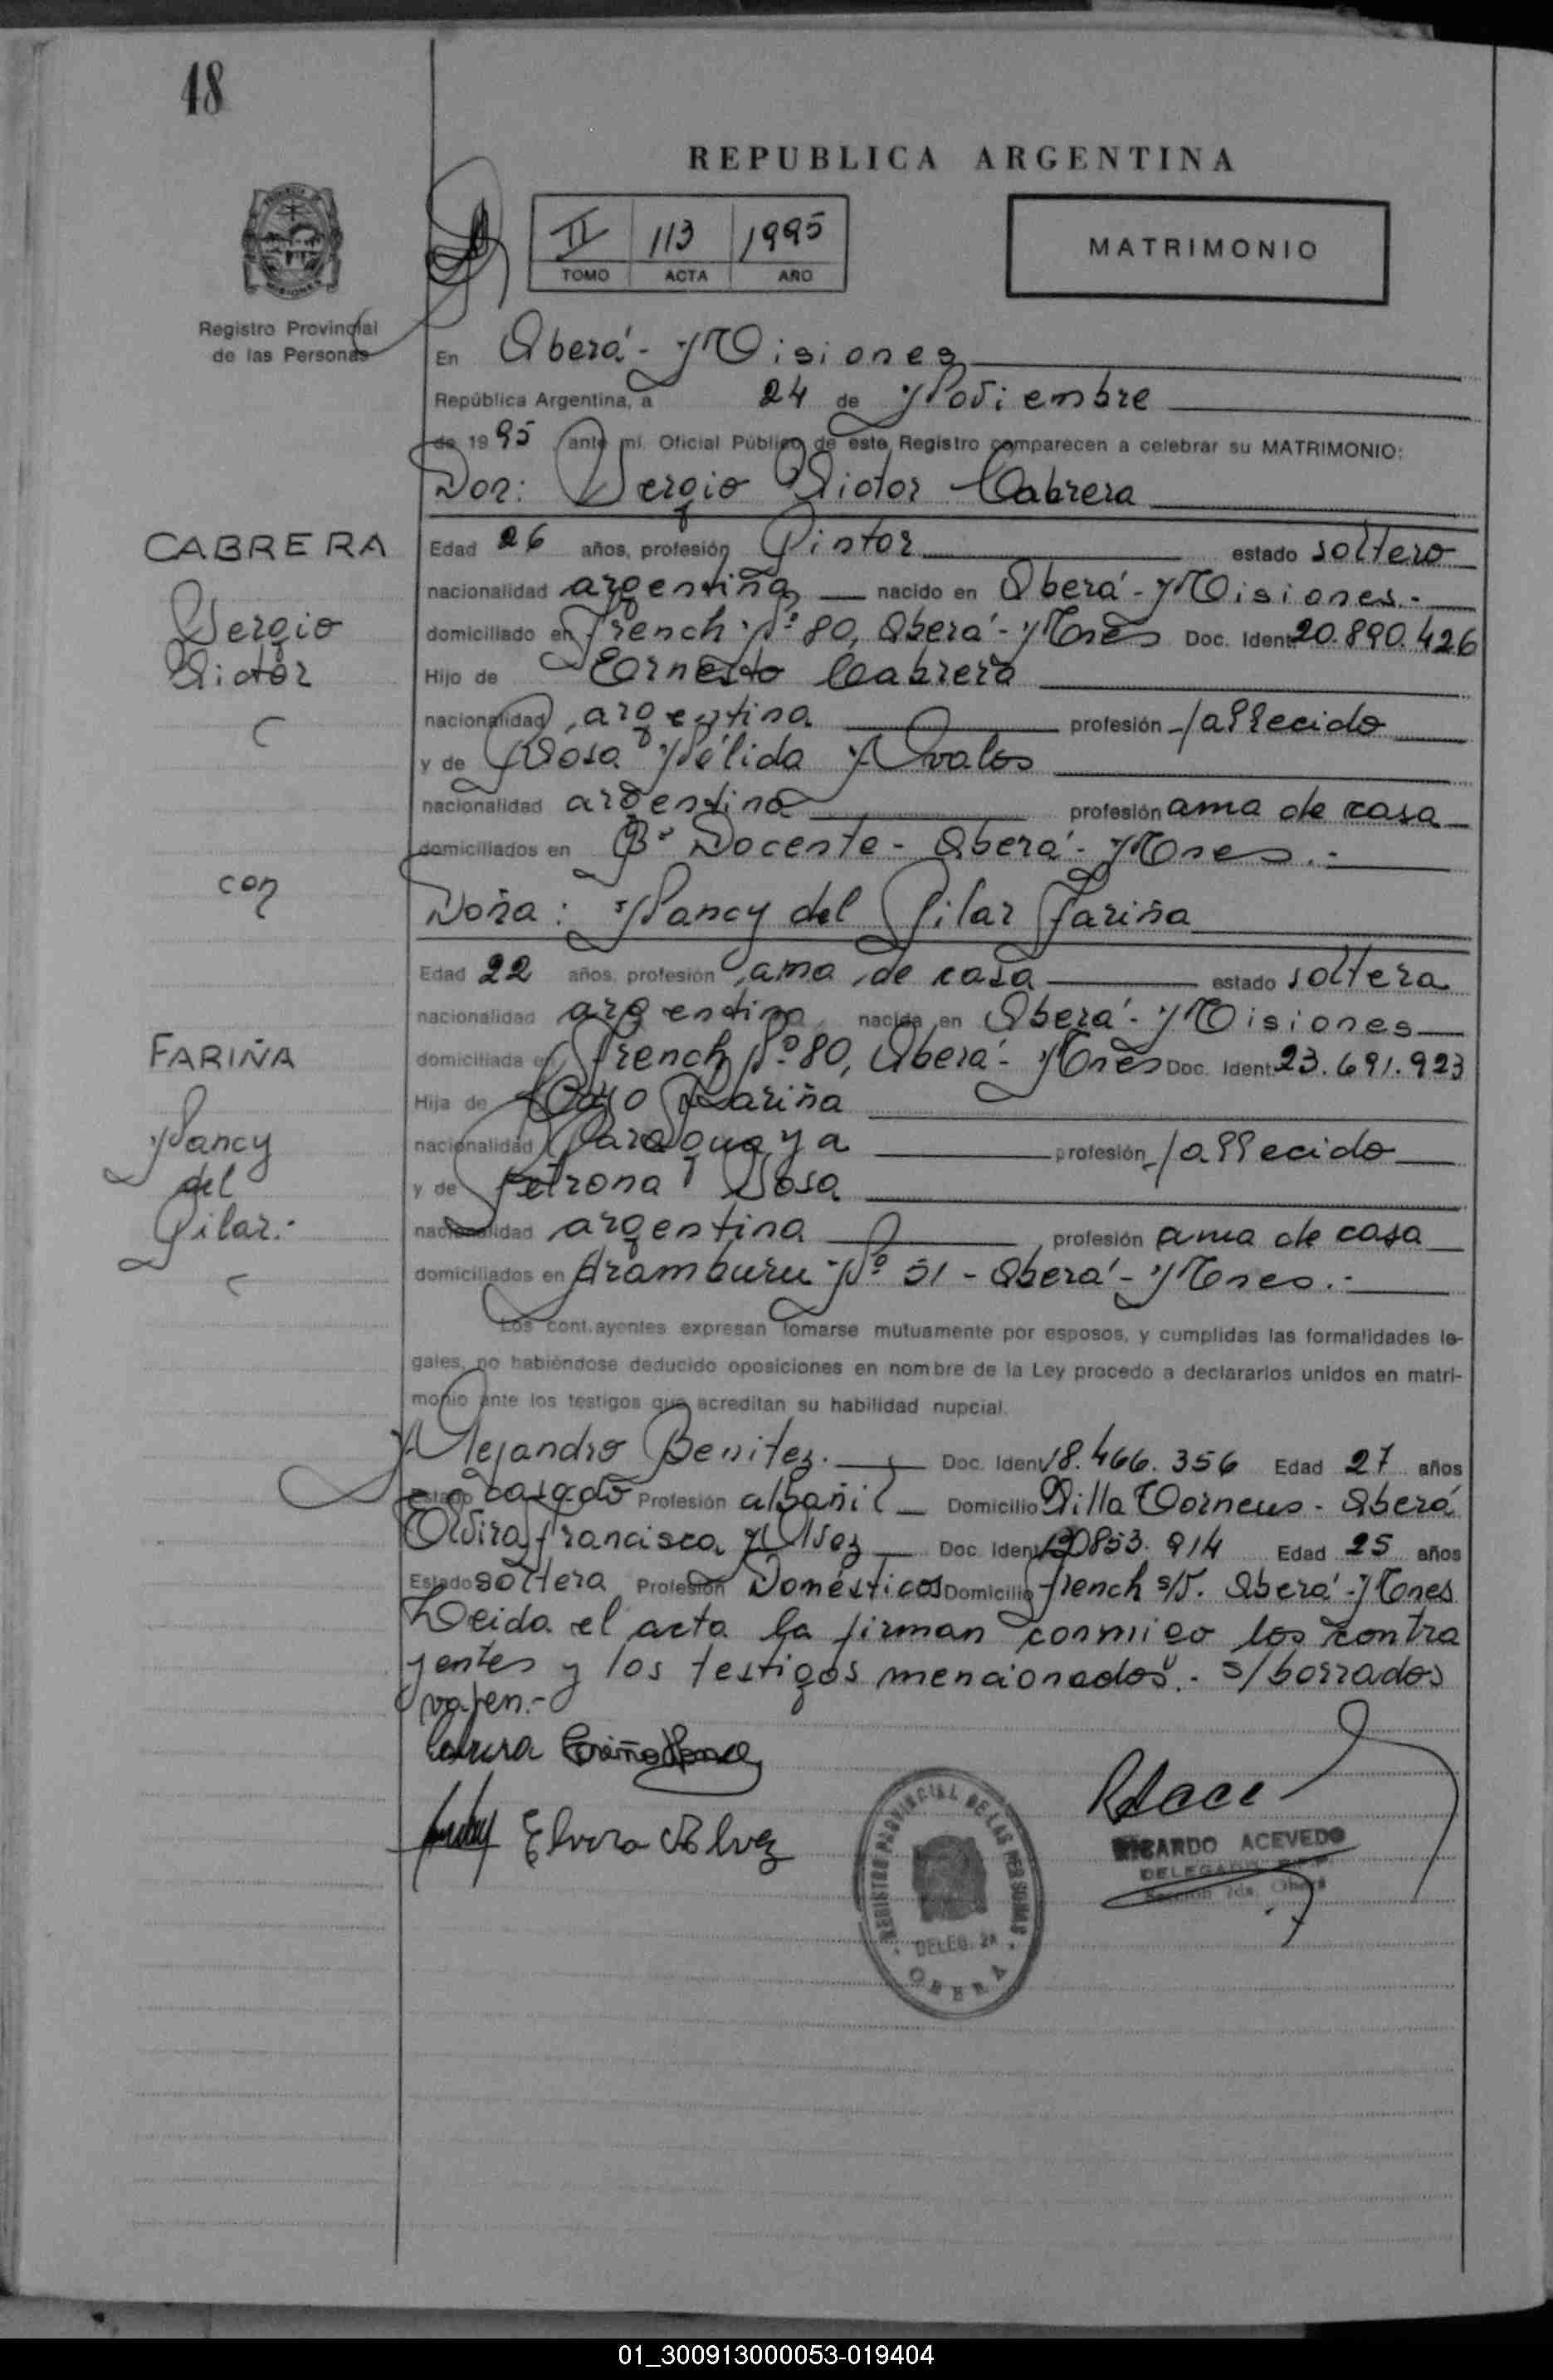 48
REPUBLICA ARGENTINA
II 113 1995
TOMO ACTA AÑO
MATRIMONIO
Registro Provincial
de las Personas
En Oberá - Misiones
República Argentina, a 24 de Noviembre
de 1995 ante mí, Oficial Público de este Registro comparecen a celebrar su MATRIMONIO:
Don: Sergio Victor Cabrera
CABRERA
Sergio
Victor
Edad 26 años, profesión Pintor estado soltero
nacionalidad argentina nacido en Oberá - Misiones.-
domiciliado en French Nº 80, Oberá - Mnes Doc. Ident. 20.890.426
Hijo de Ernesto Cabrera
nacionalidad argentina profesión fallecido
y de Rosa Nélida Avalos
nacionalidad argentina profesión ama de casa
domiciliados en Bº Docente - Oberá - Mnes.-
con
Doña: Nancy del Pilar Fariña
Edad 22 años, profesión ama de casa estado soltera
nacionalidad argentina nacida en Oberá - Misiones
FARIÑA
Nancy
del
Pilar.-
domiciliada en French Nº 80, Oberá - Mnes Doc. Ident. 23.691.923
Hija de Fariña
nacionalidad Paraguaya profesión fallecido
y de Petrona Sosa
nacionalidad argentina profesión ama de casa
domiciliados en Aramburu Nº 51 - Oberá - Mnes.-
Los cont.ayentes expresan tomarse mutuamente por esposos, y cumplidas las formalidades le-
gales, no habiéndose deducido oposiciones en nombre de la Ley procedo a declararlos unidos en matri-
monio ante los testigos que acreditan su habilidad nupcial.
Alejandro Benitez. Doc. Ident. 18.466.356 Edad 27 años
Estado casado Profesión albañil Domicilio Villa Oberá
Elvira Francisca Alvez Doc. Ident. 853.914 Edad 25 años
Estado soltera Profesión Domésticos Domicilio French s/n. Oberá - Mnes
Leida el acta la firman conmigo los contra
yentes y los testigos mencionados.- s/borrados
valen.-
Cabrera Fariña
Elvira Alvez
REGISTRO PROVINCIAL DE LAS PERSONAS
DELEG. 2a
OBERA
RICARDO ACEVEDO
DELEGADO
Sección 2da. Oberá
01_300913000053-019404